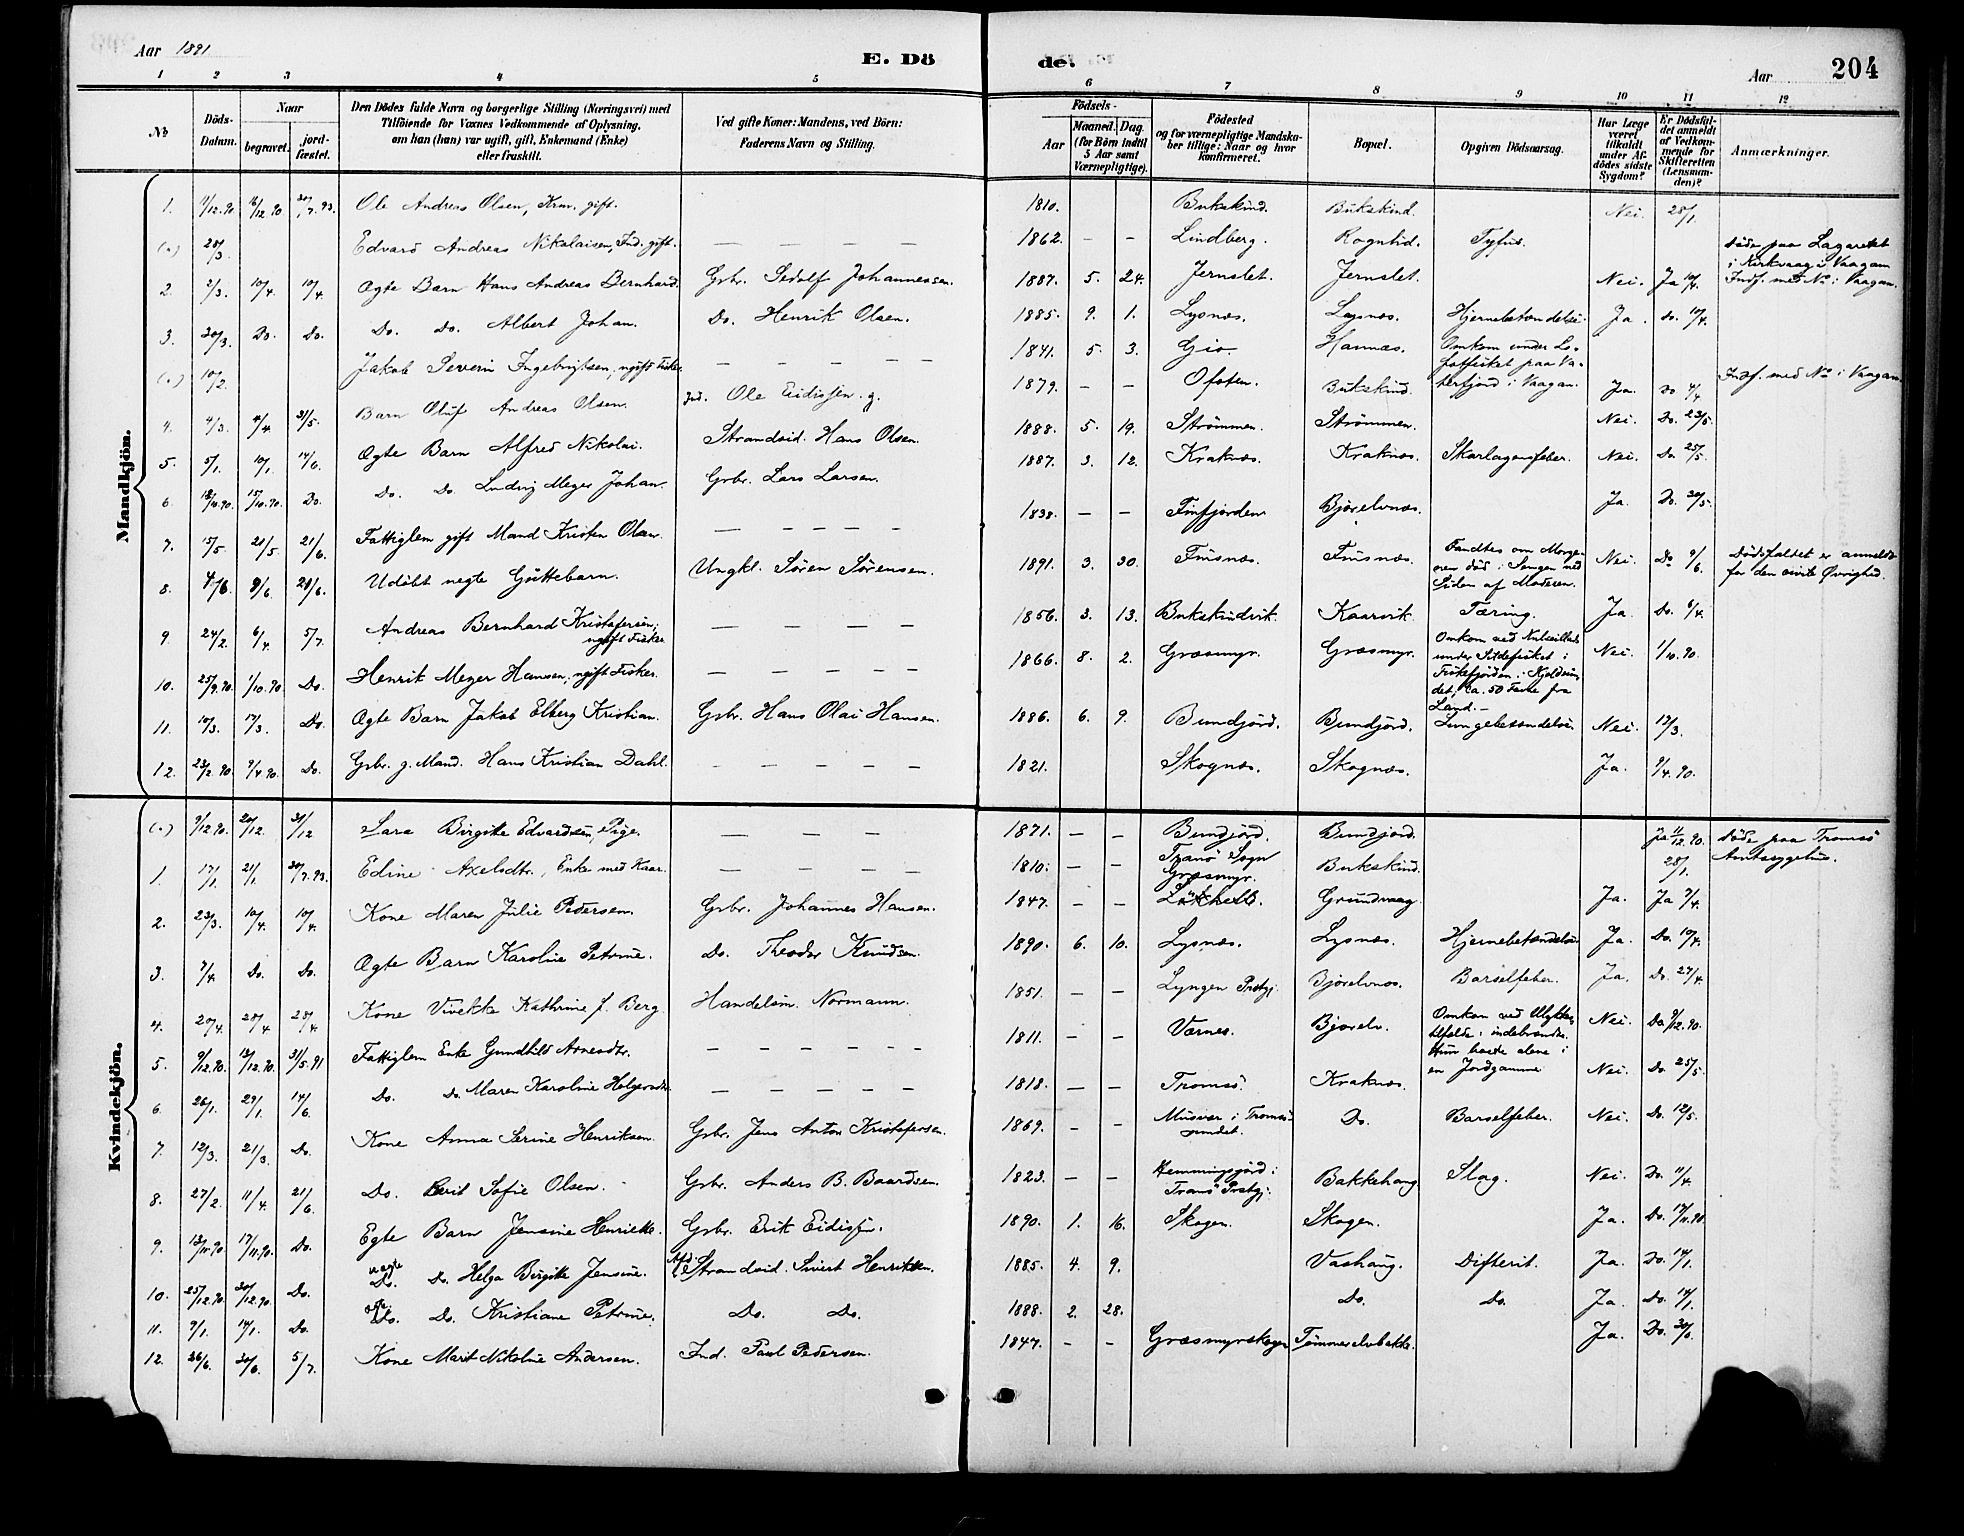 Aar 1891
E. Dö
de.
Aar
204
1 2 3 4 5 6 7 8 9 10 11 12
No
Döds-Datum.
Naar
begravet.
jord-fæstet.
Den Dödes fulde Navn og borgerlige Stilling (Næringsvei) med
Tilföiende for Voxnes Vedkommende af Oplysning,
om han (hun) var ugift, gift, Enkemand (Enke)
eller fraskilt.
Ved gifte Koner: Mandens, ved Börn:
Faderens Navn og Stilling.
Födsels-
Aar
Maaned. Dag.
(for Börn indtil
5 Aar samt
Værnepligtige).
Födested
og for værnepligtige Mandska-
ber tillige: Naar og hvor
konfirmeret.
Bopæl.
Opgiven Dödsaarsag.
Har Læge
været
tilkaldt
under Af-
dödes sidste
Sygdom?
Er Dödsfal-
det anmeldt
af Vedkom-
mende for
Skifteretten
(Lensman-
den)?
Anmærkninger.
Mandkjön.
1. 11/12.90 16/12.90 30/7.93. Ole Andreas Olsen, Krm. gift. 1810. Bukskind. Bukskind. Nei. 28/1.
(.) 20/3. Edvard Andreas Nikolaisen, Ind. gift. — — — — 1862. – – Lindberg. Rognlid. Tyfus. Døde paa Lazarettet
i Kirkvaag i Vaagan
Indf. med No i Vaagan.
2. 2/3. 10/4. 10/4 Ægte Barn Hans Andreas Bernhard. Gbr. Sedolf Johannessen. 1887. 5. 24. Jernslet. Jernslet. Nei. Ja 10/4.
3. 20/3. Do. Do. Do. Do. Albert Johan. Do. Henrik Olsen. 1885. 9. 1. Lysnæs. Lysnæs. Hjernebetændelse. Ja. Do. 10/4.
(.) 10/2. Jakob Severin Ingebrigtsen, ugift Fisker. — — — — 1841. 5. 3. Gio. Hannæs. Omkom under Lo-
fotfisket paa Va-
terfjord i Vaagan. Indf. med No i Vaagan.
4. 4/3. 4/4 31/5. Barn Oluf Andreas Olsen. Ind. Ole Eidissen. g. 1879. – – Ofoten. Bukskind. Ja. Do 4/4
5. 5/1. 10/1. 14/6. Ægte Barn Alfred Nikolai. Strandsid. Hans Olsen. 1888. 5. 19. Strømmen. Strømmen. Nei. Do. 23/5.
6. 15/10.90. Do. Do. Do. Ludvig Meyer Johan. Gbr. Lars Larsen. 1887. 3. 12. Kraknæs. Kraknæs. Skarlagensfeber. Nei. Do. 25/5.
7. 15/5. 21/5. 21/6. Fattiglem gift Mand Kristen Olsen. — — — — 1838. – – Finfjorden Bjørelvnæs. Ja. Do. 20/5.
8. 4/6. 9/6. 21/6. Udöbt uegte Guttebarn. Ungkl. Sören Sörensen. 1891. 3. 30. Finsnæs. Finsnæs. Fandtes om Morge-
nen död i Sengen ved
Siden af Moderen. Nei. Do 9/6. Dødsfaldet er anmeldt
for den civile Øvrighed.
9. 24/2. 6/4. 5/7. Andreas Bernhard Kristofersen,
ugift Fisker. — — — — 1856. 3. 13. Bukskindvik. Kaarvik. Tæring. Ja. Do. 6/4.
10. 25/9.90. 1/10.90. Do. Henrik Meyer Hansen, ugift Fisker. — — — — 1866. 8. 2. Græsmyr. Græsmyr. Omkom ved
under Sildefisket i
Fiskefjorden i Kjeldsun-
det, ca. 50 Favne fra
Land. – Nei. 1/10.90.
11. 10/3. 17/3. Do. Ægte Barn Jakob Elberg Kristian. Gbr. Hans Olai Hansen. 1886. 6. 9. Bundjord. Bundjord. Lungebetændelse. Nei. 17/3.
12. 23/2.90. 9/4.90. Do. Gbr. g. Mand. Hans Kristian Dahl. — — — — 1821. Skognæs. Skognæs. Ja. 9/4.90.
Kvindekjön.
(.) 9/12.90. 20/12. 31/12 Sara Birgitte Edvardsen, Pige. — — — 1871. – – Bundjord. Bundjord. Ja 11/12.90. Døde paa Tromsö
Amtssygehus.
1. 17/1. 21/1. 30/7.93. Edine Axelsdtr., Enke med Kaar. — — — 1810. – – Tranö Sogn
Græsmyr. Bukskind. 28/1.
2. 23/3. 10/4. 10/4. Kone Maren Julie Pedersen. Gbr. Johannes Hansen. 1847. – – Grundvaag. Ja. Ja 7/4.
3. 7/4. Do. Do. Ægte Barn Karoline Petrine. Do. Theodor Knudsen. 1890. 6. 10. Lysnæs. Lysnæs. Hjernebetændelse. Ja. Do. 10/4.
4. 20/4. 28/4. 28/4 Kone Vivekke Kathrine f. Berg. Handelsm. Normann. 1851. – – Lyngen Prstgj. Bjørelvnæs. Barselfeber. Ja. Do. 27/4.
5. 9/12.90. 13/12.90. 31/5.91 Fattiglem Enke Gundhild Arnesdtr. – – – – 1811. – – Værnes. Bjørelv. Omkom ved Ulykkes-
tilfælde: indebrændte.
Hun boede alene i
en Jordgamme Nei. Do. 9/12.90.
6. 26/1. 29/1. 14/6. Do. Do. Maren Karoline Holgersdtr. – – – – 1818. – – Tromsö. Kraknæs. Nei. Do. 25/5.
7. 12/3. 21/3. Do. Kone Anna Serine Henriksen. Gbr. Jens Anton Kristofersen. 1869. – – Musvær i Tromsö-
sundet. Do. Barselfeber. Nei. Do. 12/5.
8. 27/2. 11/4. 21/6. Do. Berit Sofie Olsen. Gbr. Anders B. Baardsen. 1823. – – Hemmingsjord i
Tranö Prstgj. Bakkehaug Slag. Nei. Do. 11/4.
9. 13/11.90. 17/11.90. Do. Egte Barn Jensine Henriette. Gbr. Erik Eidissen. 1890. 1. 16. Skogen. Skogen. Ja. Do. 17/11.90.
10. 25/12.90. 30/12.90. Do. uegte
Do. Do. Helga Birgitte Jensine. Strandsid. Sivert Henriksen. 1885. 4. 9. Vashaug. Difterit. Ja. Do. 14/1.
11. 9/1. 14/1. Do. Do. Do. Kristiane Petrine. Do. Do. 1888. 2. 28. Do. Do. Ja. Do. 14/1.
12. 26/6. 30/6. 5/7. Kone Marit Nikoline Andersen. Ind. Paul Pedersen. 1847. – – Græsmyrskogen Tømmerelvbakke. Ja. Do. 30/6.